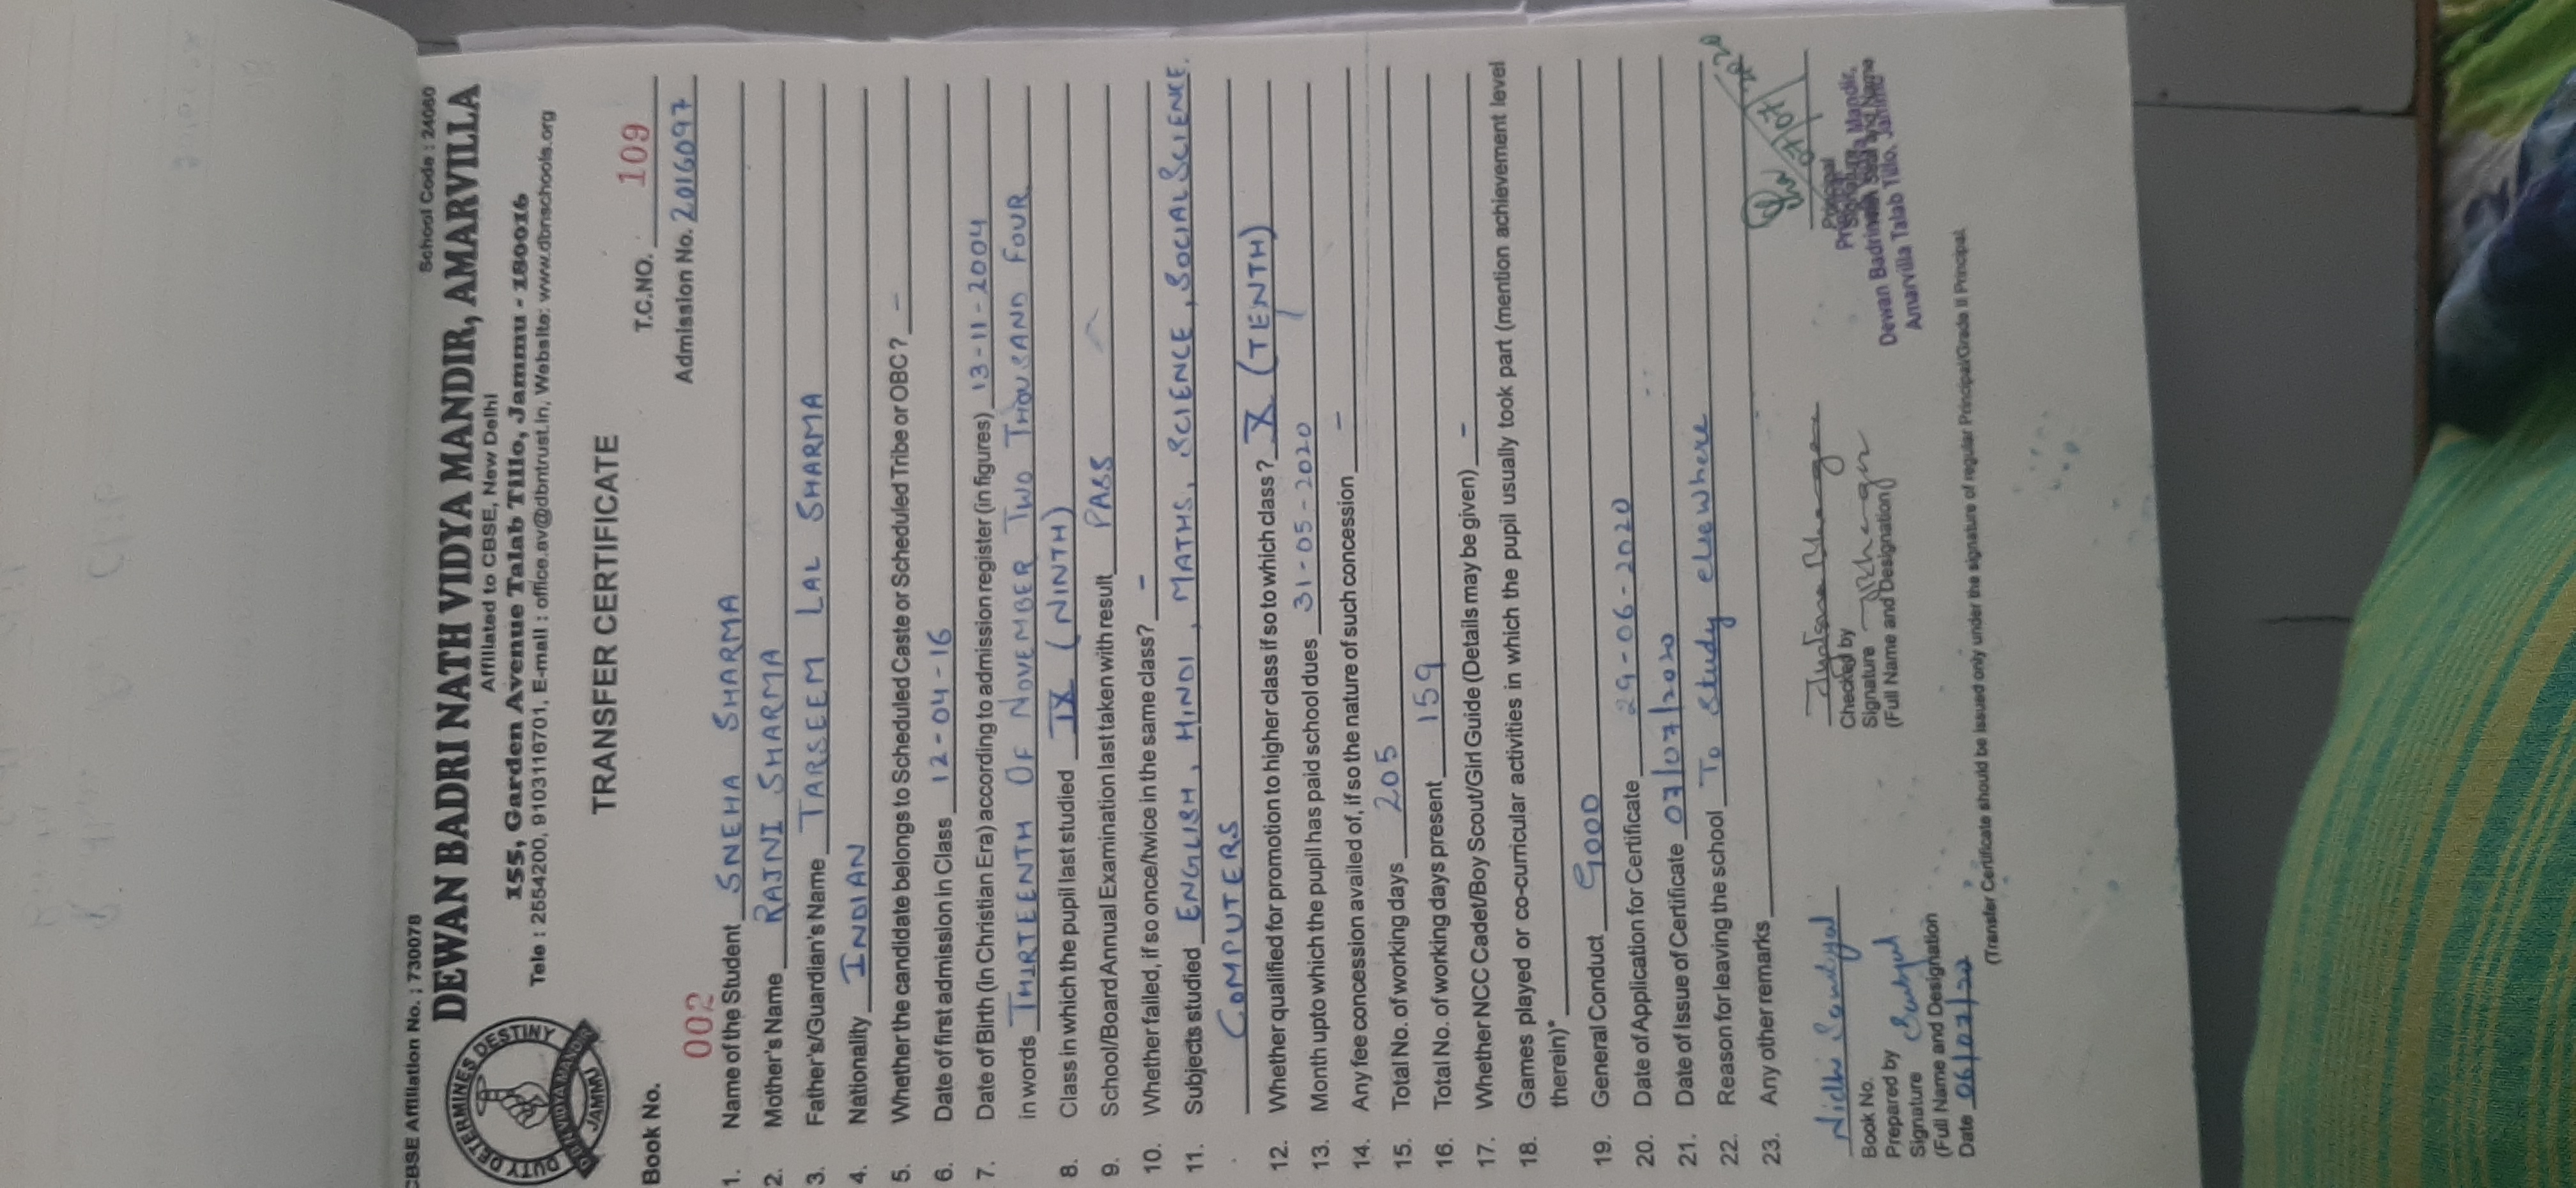 CBSE Affiliation No. : 730078 School Code : 24060
DEWAN BADRI NATH VIDYA MANDIR, AMARVILLA
Affiliated to CBSE, New Delhi
155, Garden Avenue Talab Tillo, Jammu - 180016
Tele : 2554200, 9103116701, E-mail : office.av@dbntrust.in, Website: www.dbnschools.org
DUTY DETERMINES DESTINY
JAMMU
TRANSFER CERTIFICATE
Book No. 002 T.C.NO. 109
Admission No. 2016097
1. Name of the Student SNEHA SHARMA
2. Mother's Name RAJNI SHARMA
3. Father's/Guardian's Name TARSEEM LAL SHARMA
4. Nationality INDIAN
5. Whether the candidate belongs to Scheduled Caste or Scheduled Tribe or OBC? -
6. Date of first admission in Class 12-04-16
7. Date of Birth (in Christian Era) according to admission register (in figures) 13-11-2004
in words THIRTEENTH OF NOVEMBER TWO THOUSAND FOUR
8. Class in which the pupil last studied IX (NINTH)
9. School/Board Annual Examination last taken with result PASS
10. Whether failed, if so once/twice in the same class? -
11. Subjects studied ENGLISH, HINDI, MATHS, SCIENCE, SOCIAL SCIENCE,
COMPUTERS
12. Whether qualified for promotion to higher class if so to which class? X (TENTH)
13. Month upto which the pupil has paid school dues 31-05-2020
14. Any fee concession availed of, if so the nature of such concession -
15. Total No. of working days 205
16. Total No. of working days present 159
17. Whether NCC Cadet/Boy Scout/Girl Guide (Details may be given) -
18. Games played or co-curricular activities in which the pupil usually took part (mention achievement level
therein)*
19. General Conduct GOOD
20. Date of Application for Certificate 29-06-2020
21. Date of Issue of Certificate 07/07/2020
22. Reason for leaving the school To Study elsewhere
23. Any other remarks
Nidhi
Book No.
Prepared by
Signature
(Full Name and Designation
Date 06/07/20
Checked by
Signature
(Full Name and Designation)
Principal
Dewan Badrinath
Amarvilla Talab Tillo, Jammu
(Transfer Certificate should be issued only under the signature of regular Principal/Grade II Principal.